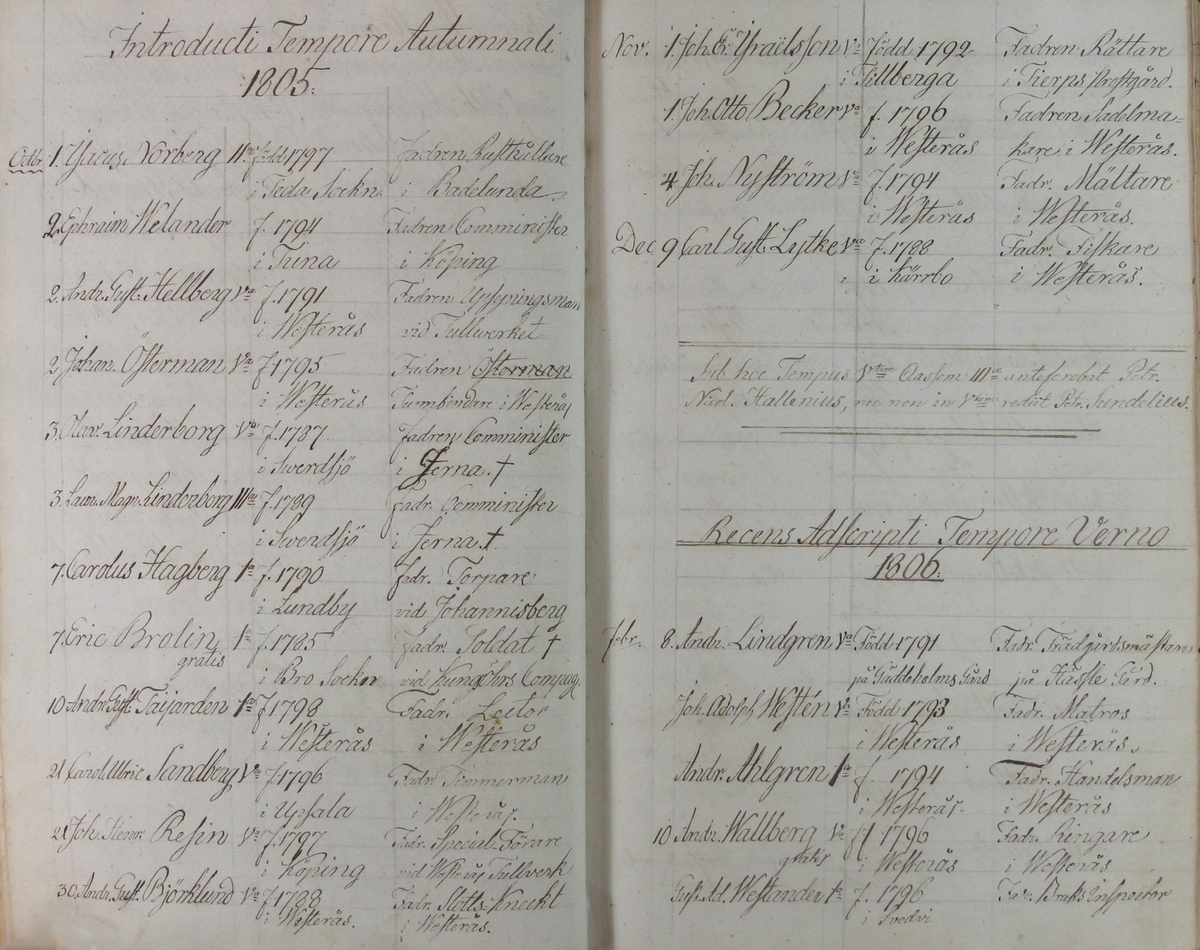 Introducti Tempore Autumnali
1805.
Octbr 1. Isacus Norberg II.ae född 1797 Fadren Rusthållare
i Teda Sockn. i Badelunda.
2. Ephraim Welander f. 1794 Fadren Comminister
i Tuna i Köping
2. Andr. Gust. Hellberg Va f. 1791 Fadren Upsyningsman
i Westerås vid Tullwerket
2 Johan. Österman Va f. 1795 Fadren Österman
i Westerås Tunnbindare i Westerås
3. Olav. Linderborg Va f. 1787 Fadren Comminister
i Swerdsjö i Jerna. †
3. Laur. Magn. Linderborg IIIa f. 1789 fadr. Comminister
i Swerdsjö i Jerna. †
7. Carolus Hagberg 1a f. 1790 fadr. Torpare
i Lundby vid Johannisberg
7. Eric Brolin 1a f. 1785 fadr. Soldat †
gratis i Bro Socken vid Kungsöhrs Compag.
10 Andr. Gust. 1a f. 1798 Fadr. Lector
i Westerås i Westerås
21 Carol. Ulric Sandberg Va f. 1796 Fadr. Timmerman
i Upsala i Westerås.
21. Joh. Henr. Resin Va f. 1797 Fadr. Special Förare
i Köping vid Westerås Tullverk
30. Andr. Gust. Björklund Va f. 1788 Fadr. Slotts Knecht
i Westerås. i Westerås.
Nov. 1. Joh. Er. Ysraëlsson Va Född 1792 Fadren Rättare
i Tillberga i Tierps Prostgård.
1. Joh. Otto Becker Va f. 1796 Fadren Sadelma=
i Westerås kare i Westerås.
4 Joh. Nyström Va f. 1794 Fadr. Mältare
i Westerås i Westerås.
Dec 9 Carl Gust. Lytke Va f. 1788 Fadr. Fiskare
i Kärrbo i Westerås.
Sub hoc Tempus Vtam Classem IIIae antescrobit Petr.
Nicol. Hallenius, nec non in Vtam rediit Petr. Sundelius.
Recens Adscripti Tempore Verno
1806.
Febr. 8. Andr. Lindgren Va Född 1791 Fadr. Trädgårdsmästare
på Gäddeholms Gård på Hässle Gård.
Joh. Adolph Westén Va Född 1793 Fadr. Matros
i Westerås i Westerås.
Andr. Ahlgren 1a f. 1794 Fadr. Handelsman
i Westerås. i Westerås
10 Andr. Wallberg Va f. 1796 Fadr. Ringare
gratis i Westerås i Westerås
Gust. Ad. Westander 1a f. 1796 Fadr. Bruks Inspector
i Svedvi